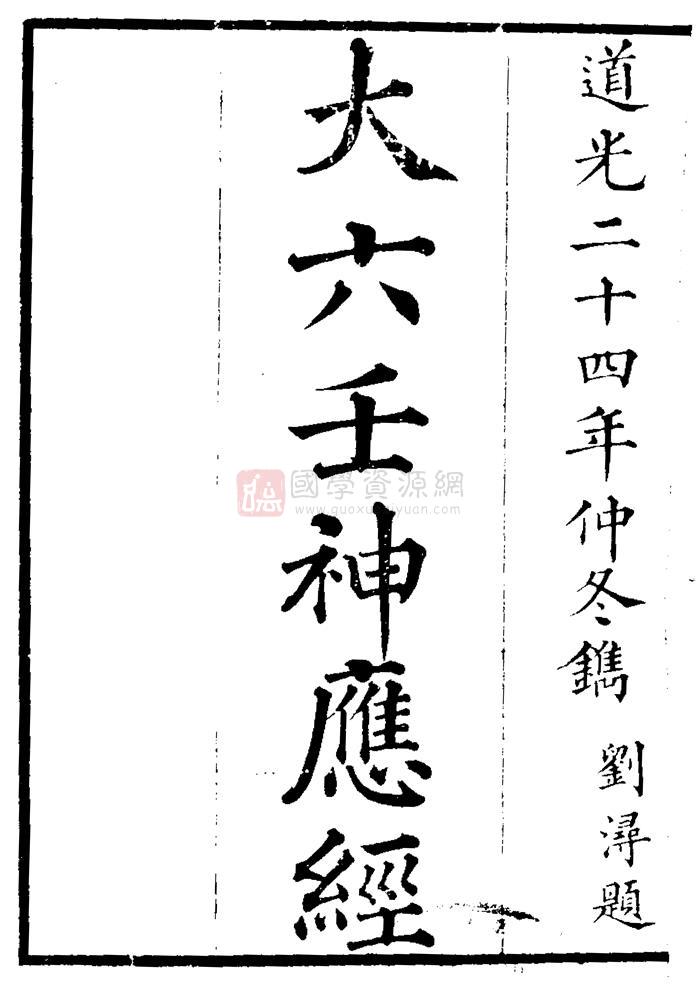 道光二十四年仲冬鐫 劉潯題
大六壬神應經
國學資源網